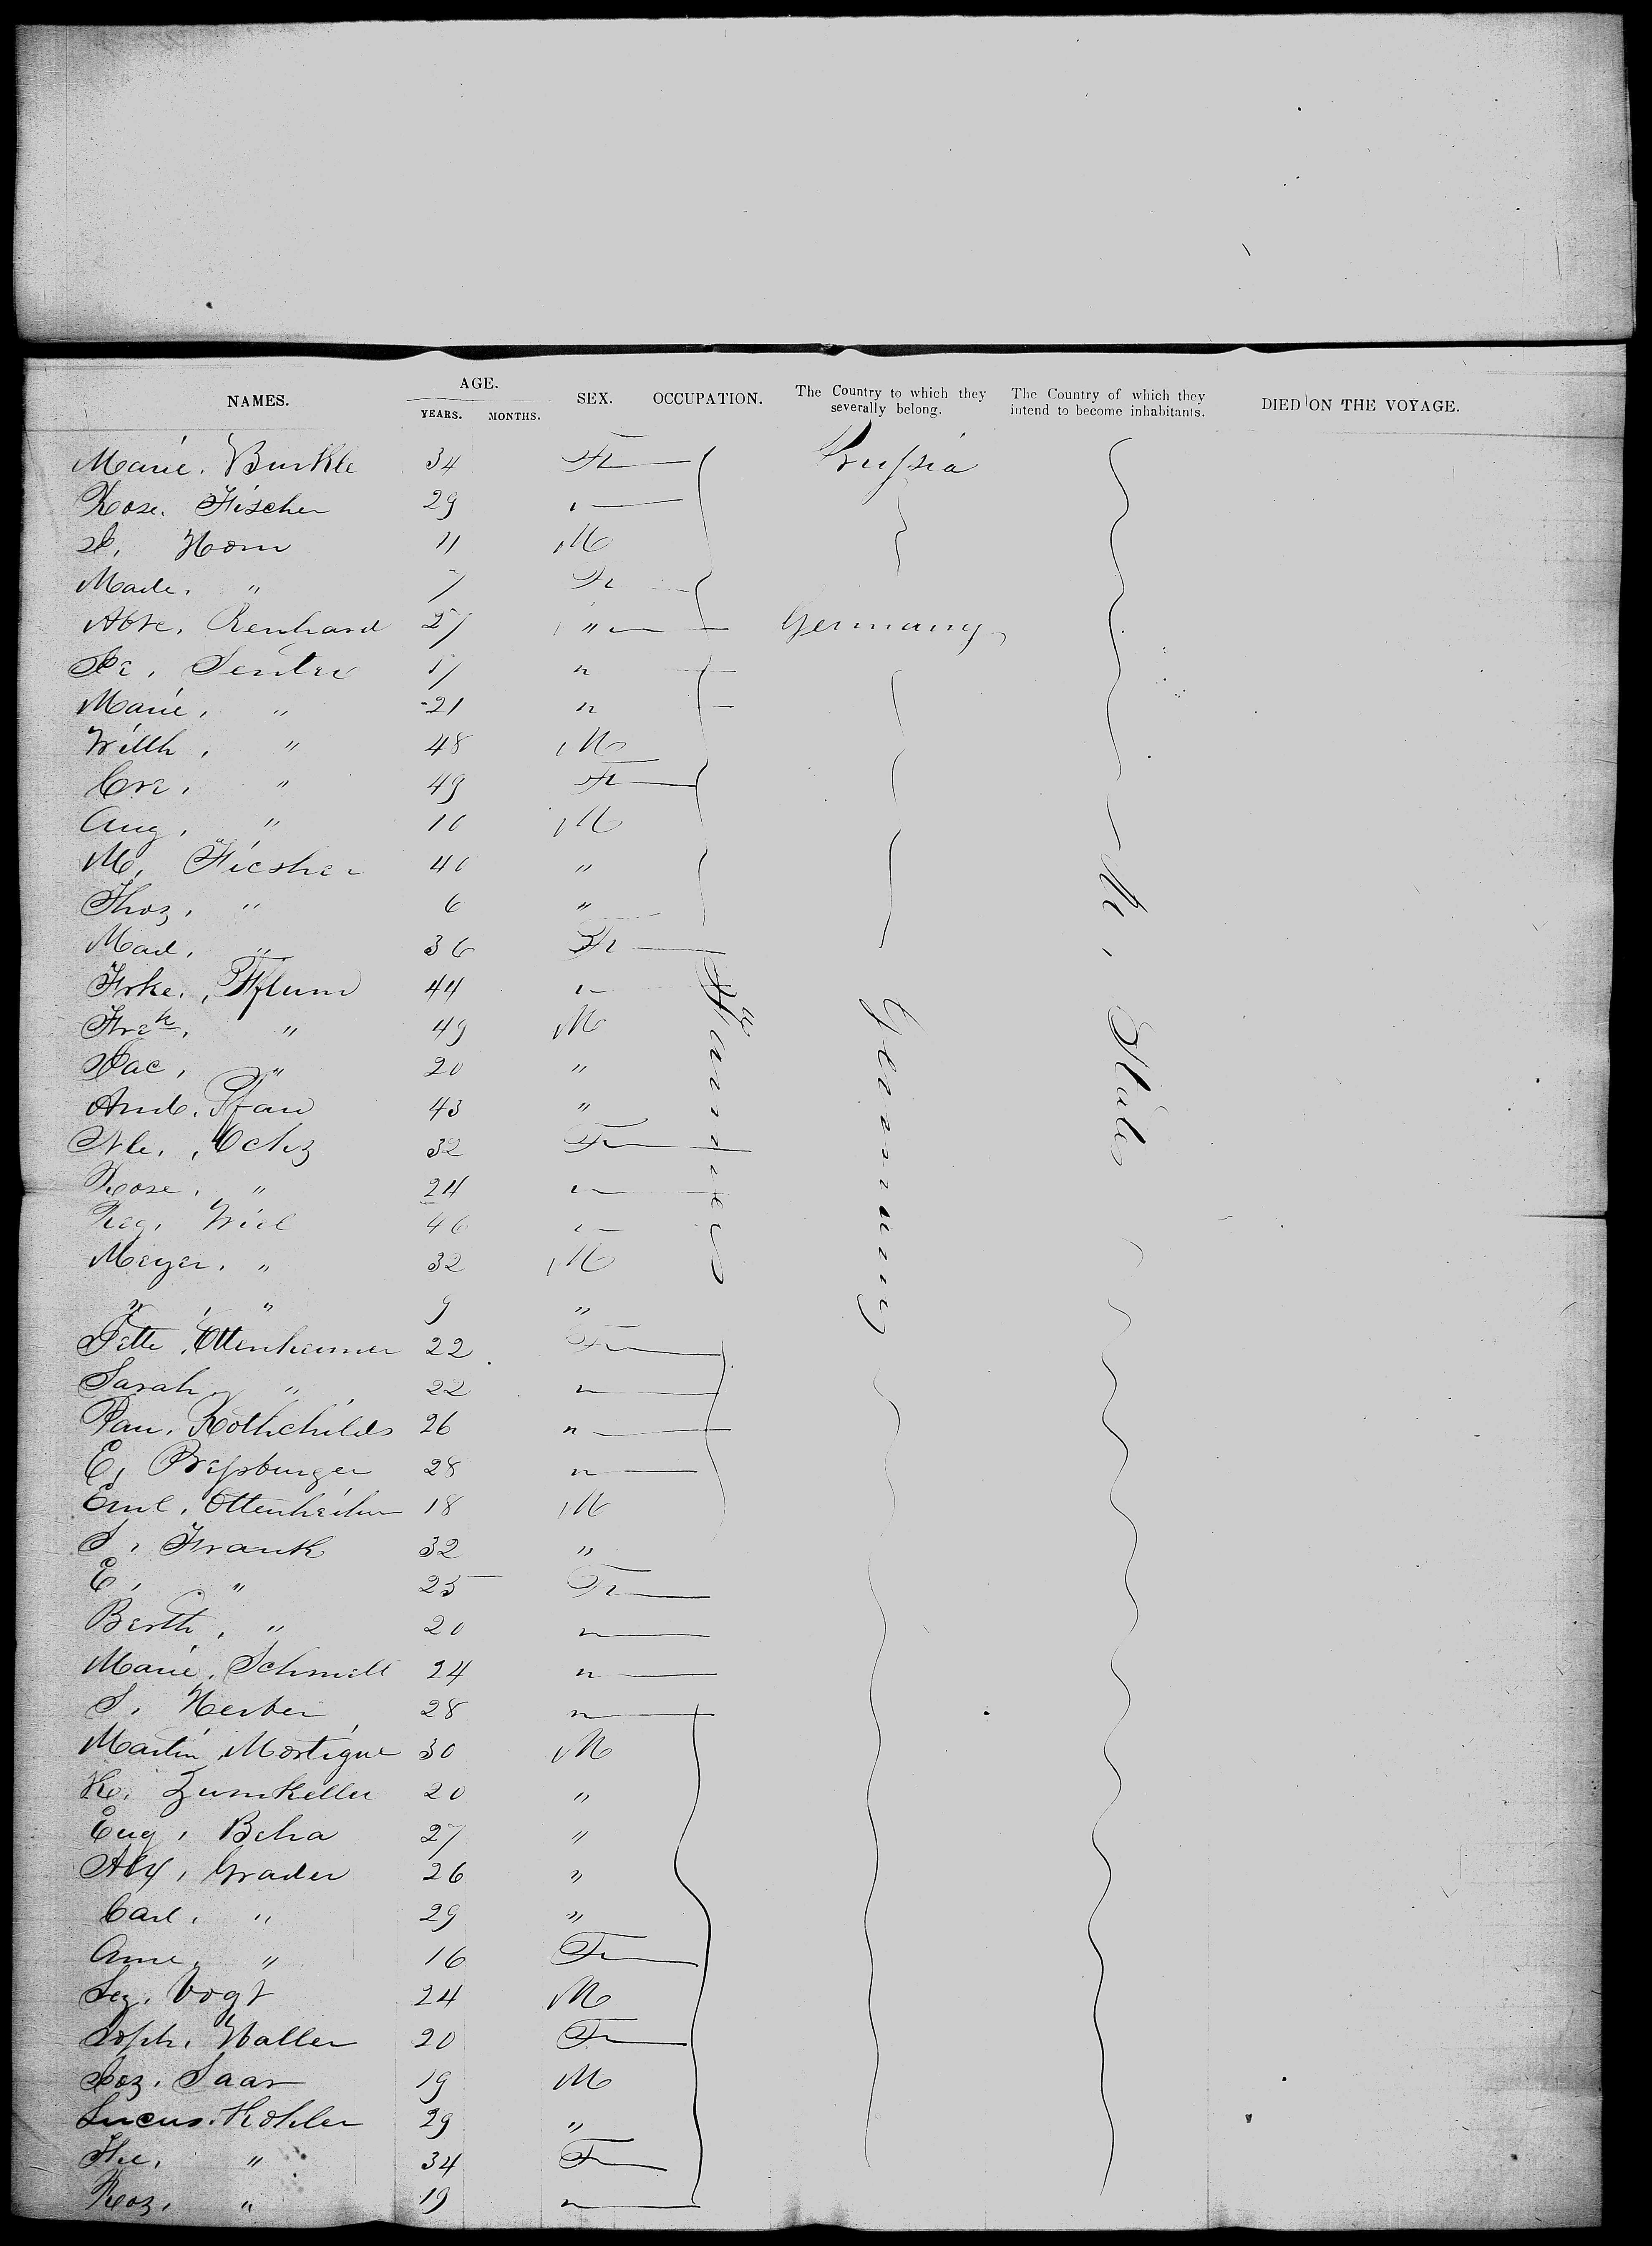 NAMES. AGE. YEARS. MONTHS. SEX. OCCUPATION. The Country to which they severally belong. The Country of which they intend to become inhabitants. DIED ON THE VOYAGE.
Marie. Burkle 34 Fe Prussia
Rose. Fischer 29 "
Horn 11 M
Made. " 7 Fe
Renhard 27 " Germany
17 "
Marie, " 21 "
Willh, " 48 M
Cre, " 49 Fe
Aug, " 10 M
M, Fiesher 40 "
Thoz, " 6 "
Mad, " 36 Fe
Frke, Pflum 44 "
Frek, " 49 M
Jac, " 20 "
And. Pfau 43 "
Ochz 32 Fe
Rose, " 24 "
Reg, Wiel 46 "
Meyer, " 32 M
" " 9 "
Jette, Ottenheimer 22 Fe
Sarah " 22 "
Pau. Rothchilds 26 "
E, Pressburger 28 "
Eml, Ottenheim 18 M
S, Frank 32 "
E, " 25 Fe
Berth, " 20 "
Marie, Schmidt 24 "
S, Herber 28 "
Martin, Mortique 30 M
K. Zumkeller 20 "
Eug, Beha 27 "
Alex, Grader 26 "
Carl, " 29 "
Ame, " 16 Fe
Sez. Vogt 24 M
Soph. Haller 20 Fe
Joz. Saar 19 M
Lucus. Kohler 29 "
The, " 34 Fe
Roz, " 19 "
Farmers
Germany
U. States